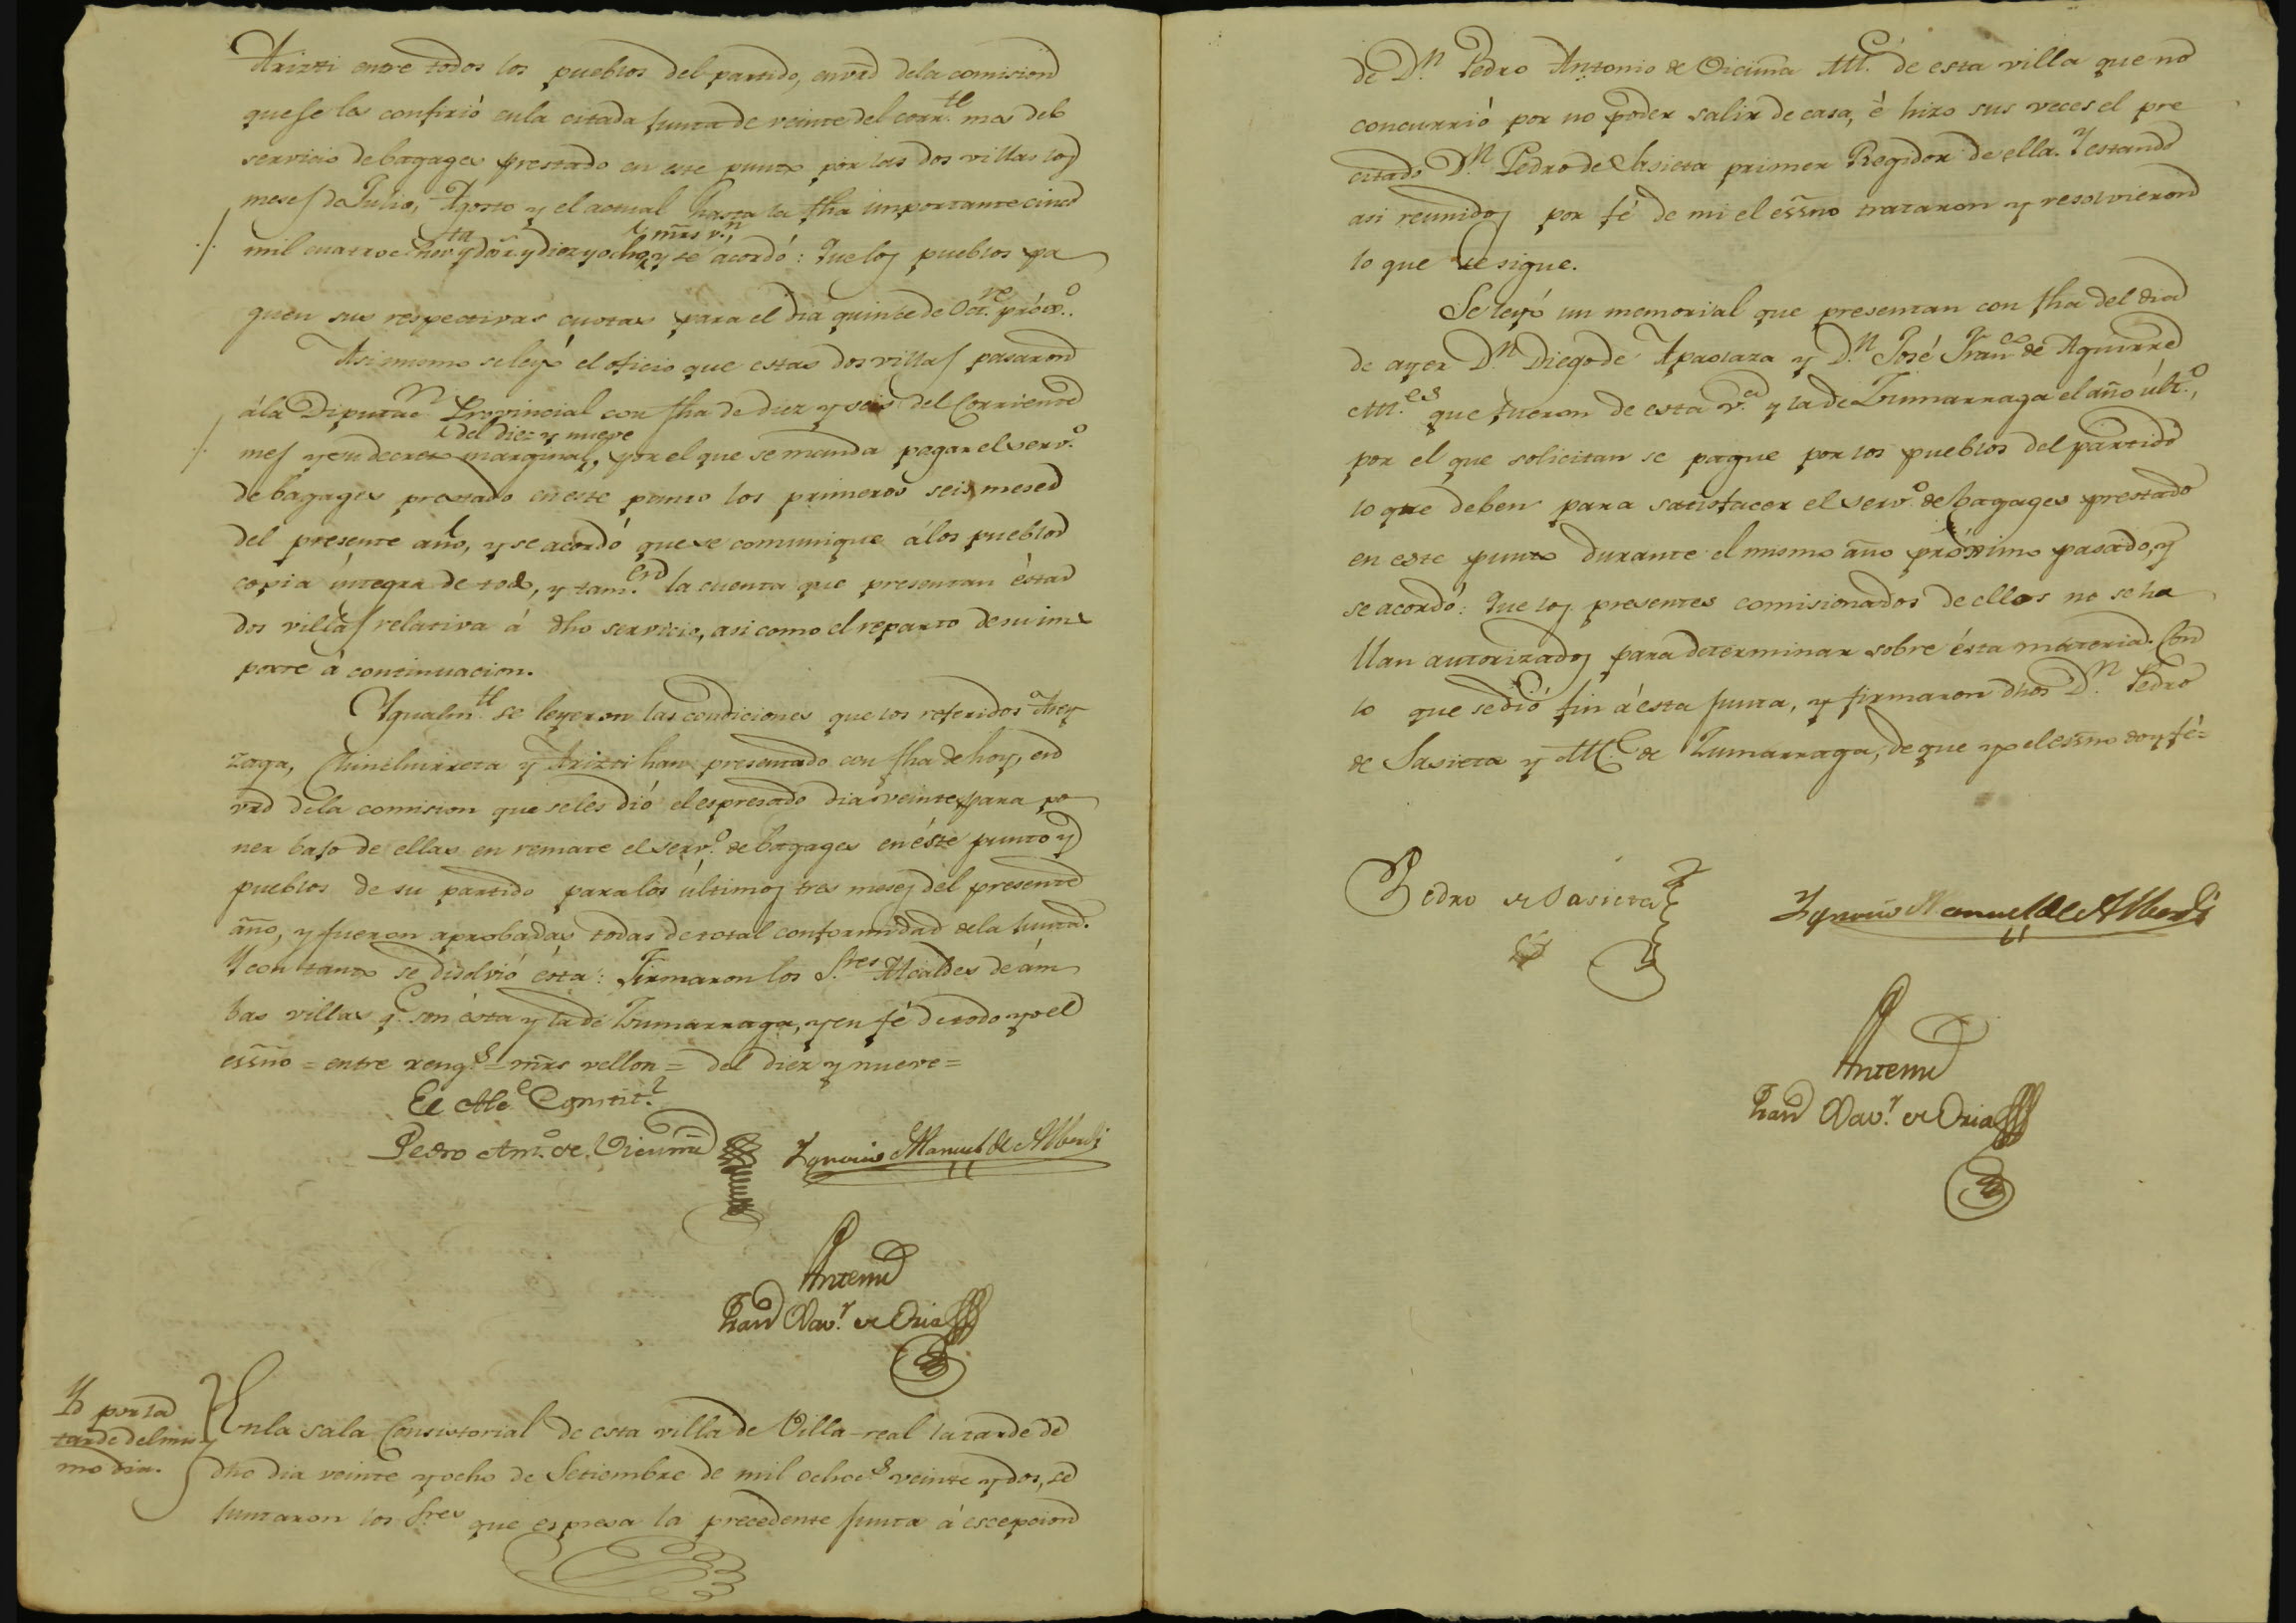 Arizti entre todos los pueblos del partido, en vrd dela comision
que se les confirió en la citada Junta de veinte del corr.te mes del
servicio de bagages prestado en este punto por las dos villas los
meses de Julio, Agosto y el actual hasta la fha importante cinco
mrs v.n
mil cuatroc y dos r.s y diez y ocho y se acordó: Que los pueblos pa
guen sus respectivas cuotas para el dia quince de Oct.re próx.o.
Asi mismo se leyó el oficio que estas dos villas pasaron
á la Diputac.n Provincial con fha de diez y seis del Corriente
del diez y nueve
mes y su decreto marginal, por el que se manda pagar el serv.o
de bagages prestado en este punto los primeros seis meses
del presente año, y se acordó que se comunique á los pueblos
copia íntegra de todo, y tam.en la cuenta que presentan éstas
dos villas relativa á dho servicio, asi como el reparto de su im
porte á continuacion.
Ygualm.te se leyeron las condiciones que los referidos
zaga, Chinchurreta y Arizti han presentado con fha de hoy, en
vrd dela comision que se les dió el espresado dia veinte para po
ner bajo de ellas en remate el serv.o de bagages en éste punto y
pueblos de su partido para los últimos tres meses del presente
año, y fueron aprobadas todas de total conformidad de la Junta.
Y con tanto se disolvió ésta: Firmaron los S.res Alcaldes de ám
bas villas q.e son ésta y la de Zumarraga, y en fé de todo yo el
essno = entre reng.s = mrs vellon = del diez y nueve =
El Alc.e Constit.l
Pedro Ant.o de Oicina Ygnacio Manuel de Alberdi
Antemi
Fran.co Xav.r de Oria
Yd por la
tarde del mis
mo dia.
En la sala Consistorial de esta villa de Villa-real la tarde de
dho dia veinte y ocho de Setiembre de mil ochoc.s veinte y dos, se
juntaron los S.res que espresa la precedente Junta á escepcion
de D.n Pedro Antonio de Oicina Al.e de esta villa que no
concurrió por no poder salir de casa, é hizo sus veces el pre
citado D.n Pedro de Sasieta primer Regidor de ella. Y estando
asi reunidos por fé de mi el essno trataron y resolvieron
lo que se sigue.
Se leyó un memorial que presentan con fha del dia
de ayer D.n Diego de Apaolaza y D.n José Fran.co de Aguirre
Al.es que fueron de esta v.a y la de Zumarraga el año últ.o,
por el que solicitan se pague por los pueblos del partido
lo que deben para satisfacer el serv.o de bagages prestado
en este punto durante el mismo año próximo pasado, y
se acordó: Que los presentes comisionados de ellos no se ha
llan autorizados para determinar sobre ésta materia. Con
lo que se dió fin á ésta Junta, y firmaron dhos D.n Pedro
de Sasieta y Al.e de Zumarraga, de que yo el essno doy fé =
Pedro de Sasieta Ygnacio Manuel de Alberdi
Antemi
Fran.co Xav.r de Oria